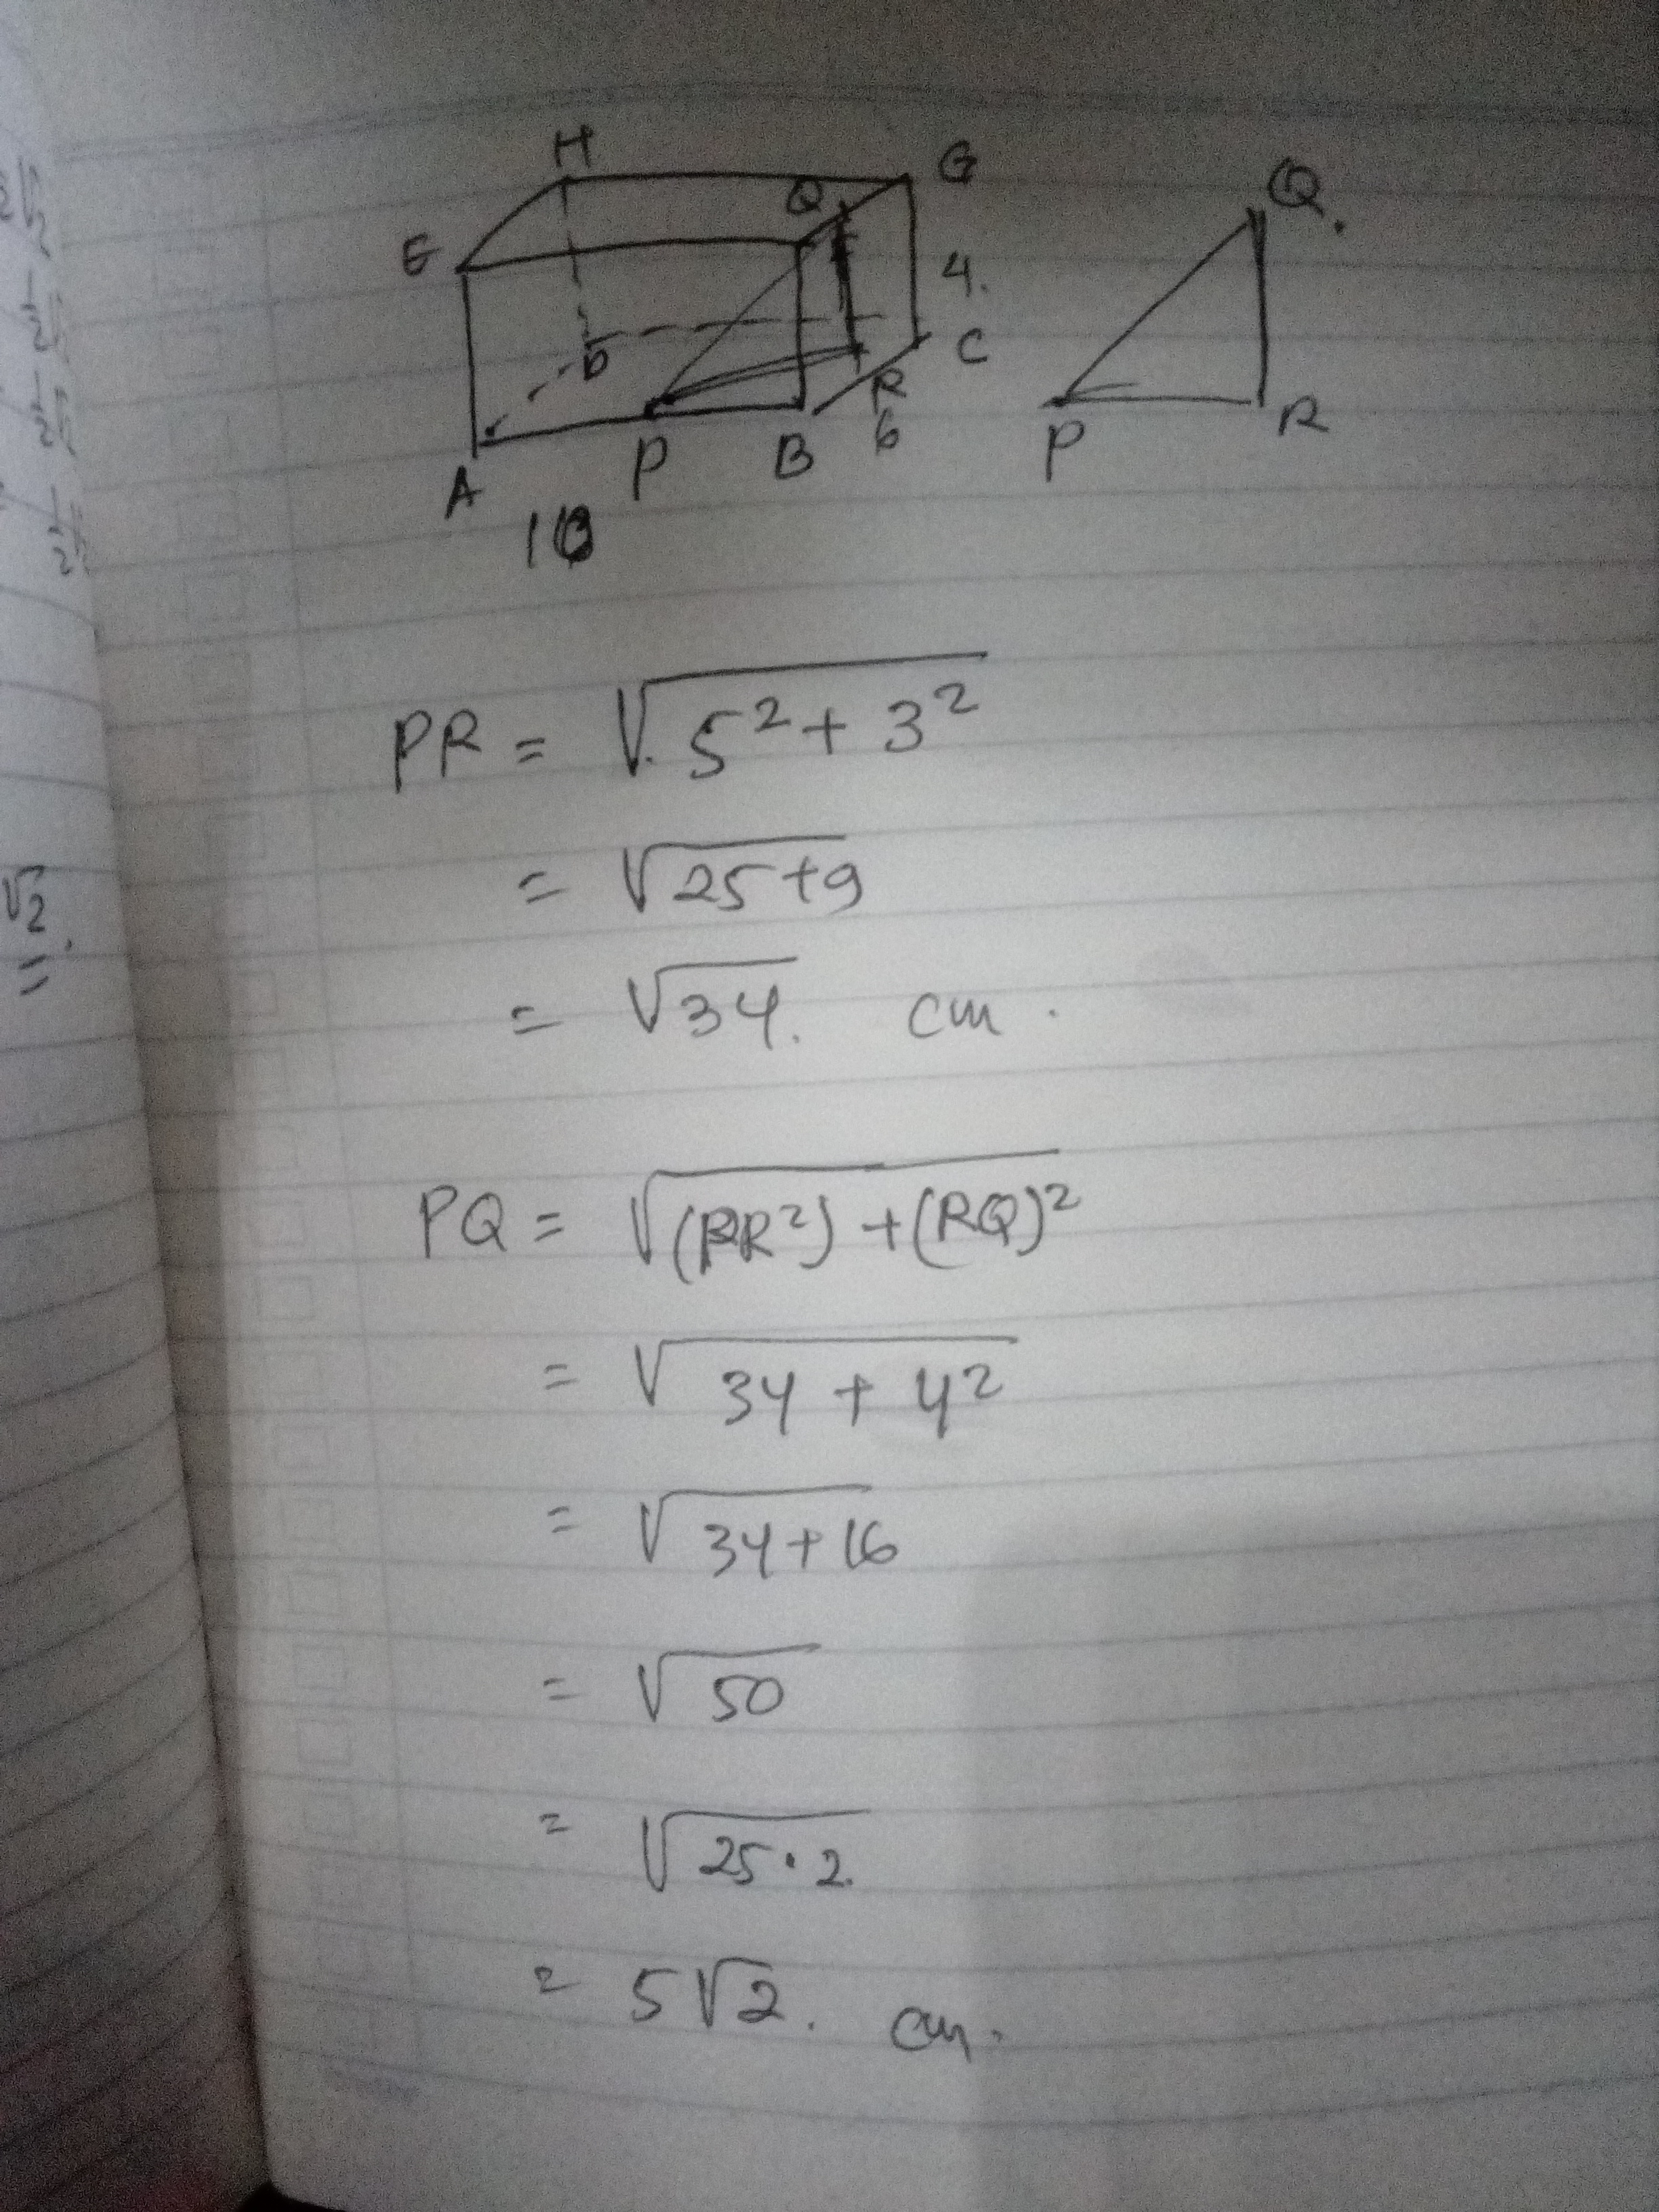 H
G
Q
E
4.
D
C
R
P
B
6
A
Q.
P
R
PR = √5² + 3²
= √25+9
= √34. cm.
PQ = √(PR²) + (RQ)²
= √34 + 4²
= √34+16
= √50
= √25·2.
= 5√2. cm.
√2
=